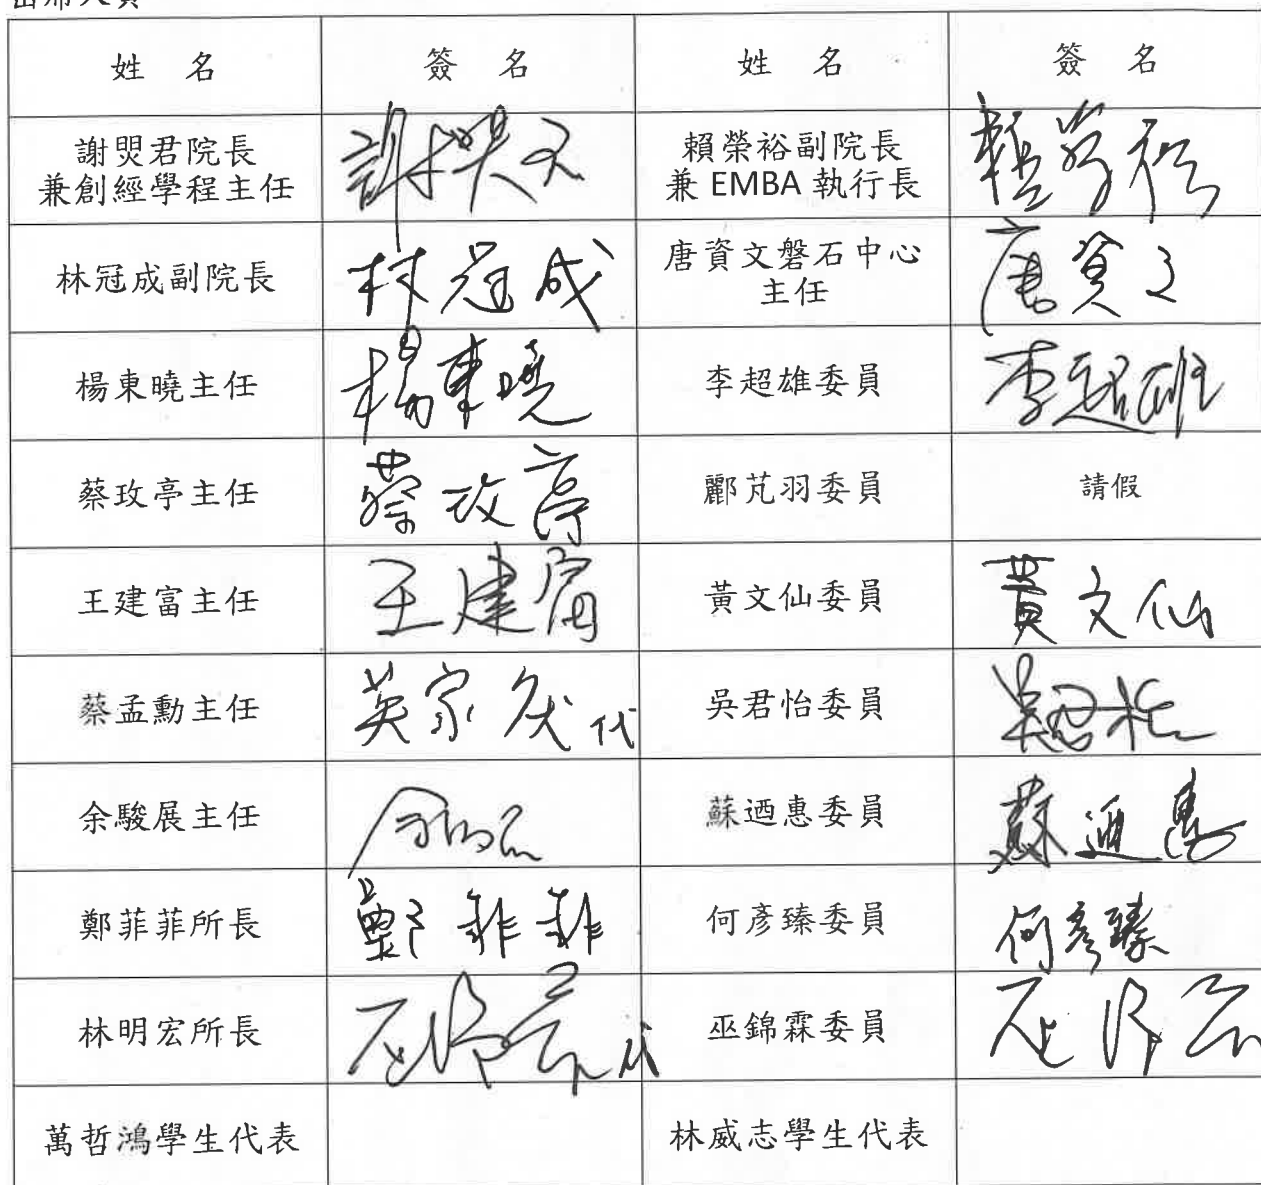 出席人員
姓 名 簽 名 姓 名 簽 名
謝焸君院長
兼創經學程主任
賴榮裕副院長
兼 EMBA 執行長
林冠成副院長 林冠成
唐資文磐石中心
主任
唐資文
楊東曉主任 楊東曉 李超雄委員 李超雄
蔡玫亭主任 蔡玫亭 酈芃羽委員 請假
王建富主任 王建富 黃文仙委員 黃文仙
蔡孟勳主任 代 吳君怡委員 吳君怡
余駿展主任 蘇迺惠委員 蘇迺惠
鄭菲菲所長 鄭菲菲 何彥臻委員 何彥臻
林明宏所長 代 巫錦霖委員
萬哲鴻學生代表 林威志學生代表